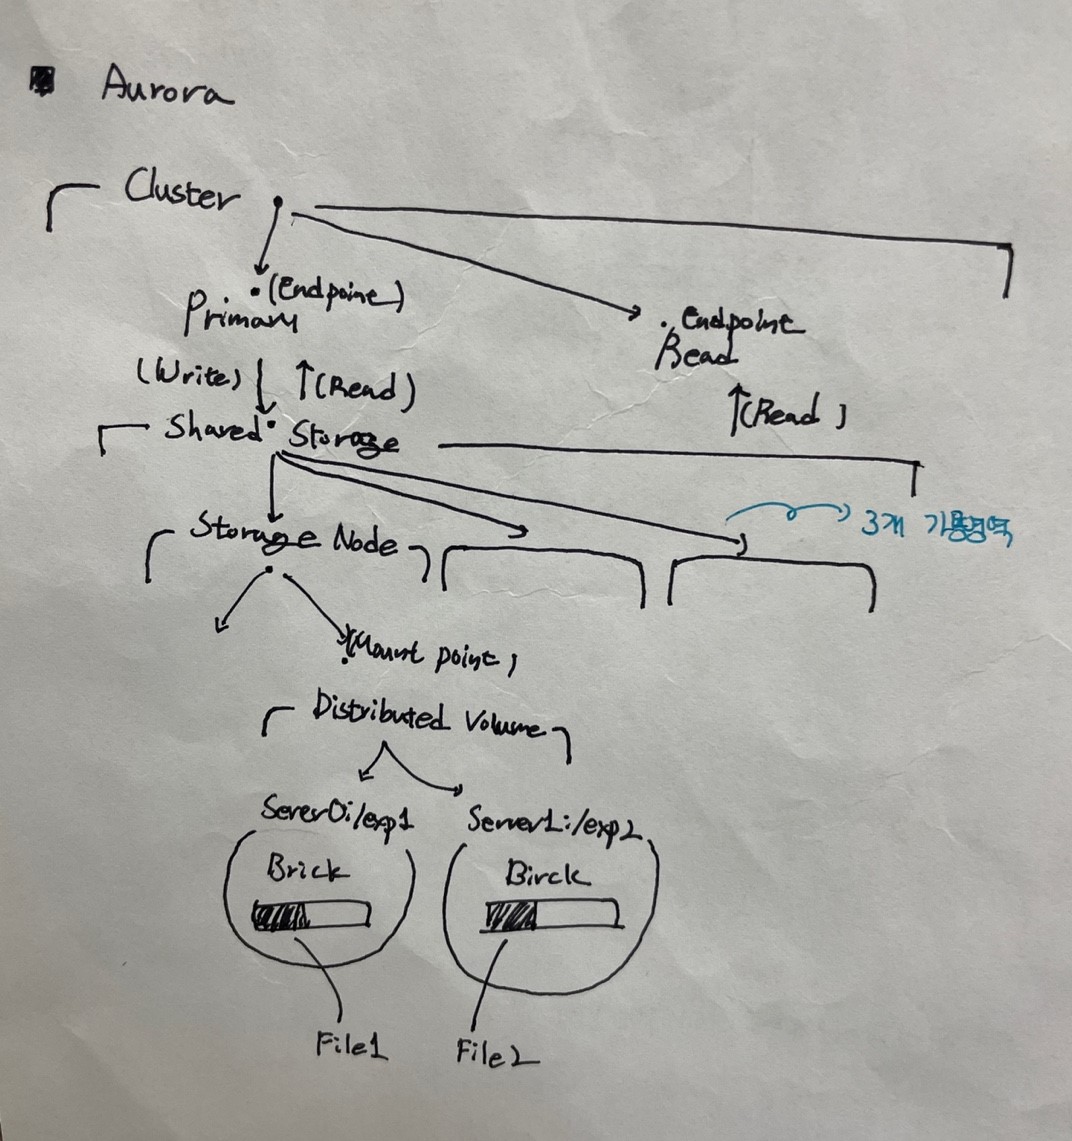 Aurora
Cluster
(Endpoint)
Primary
. Endpoint
Read
(Write) ↓ ↑(Read)
↑(Read)
Shared Storage
3개 가용영역
Storage Node
(Mount point)
Distributed Volume
Sever0:/exp1
Server1:/exp2
Brick
Birck
File1
File2